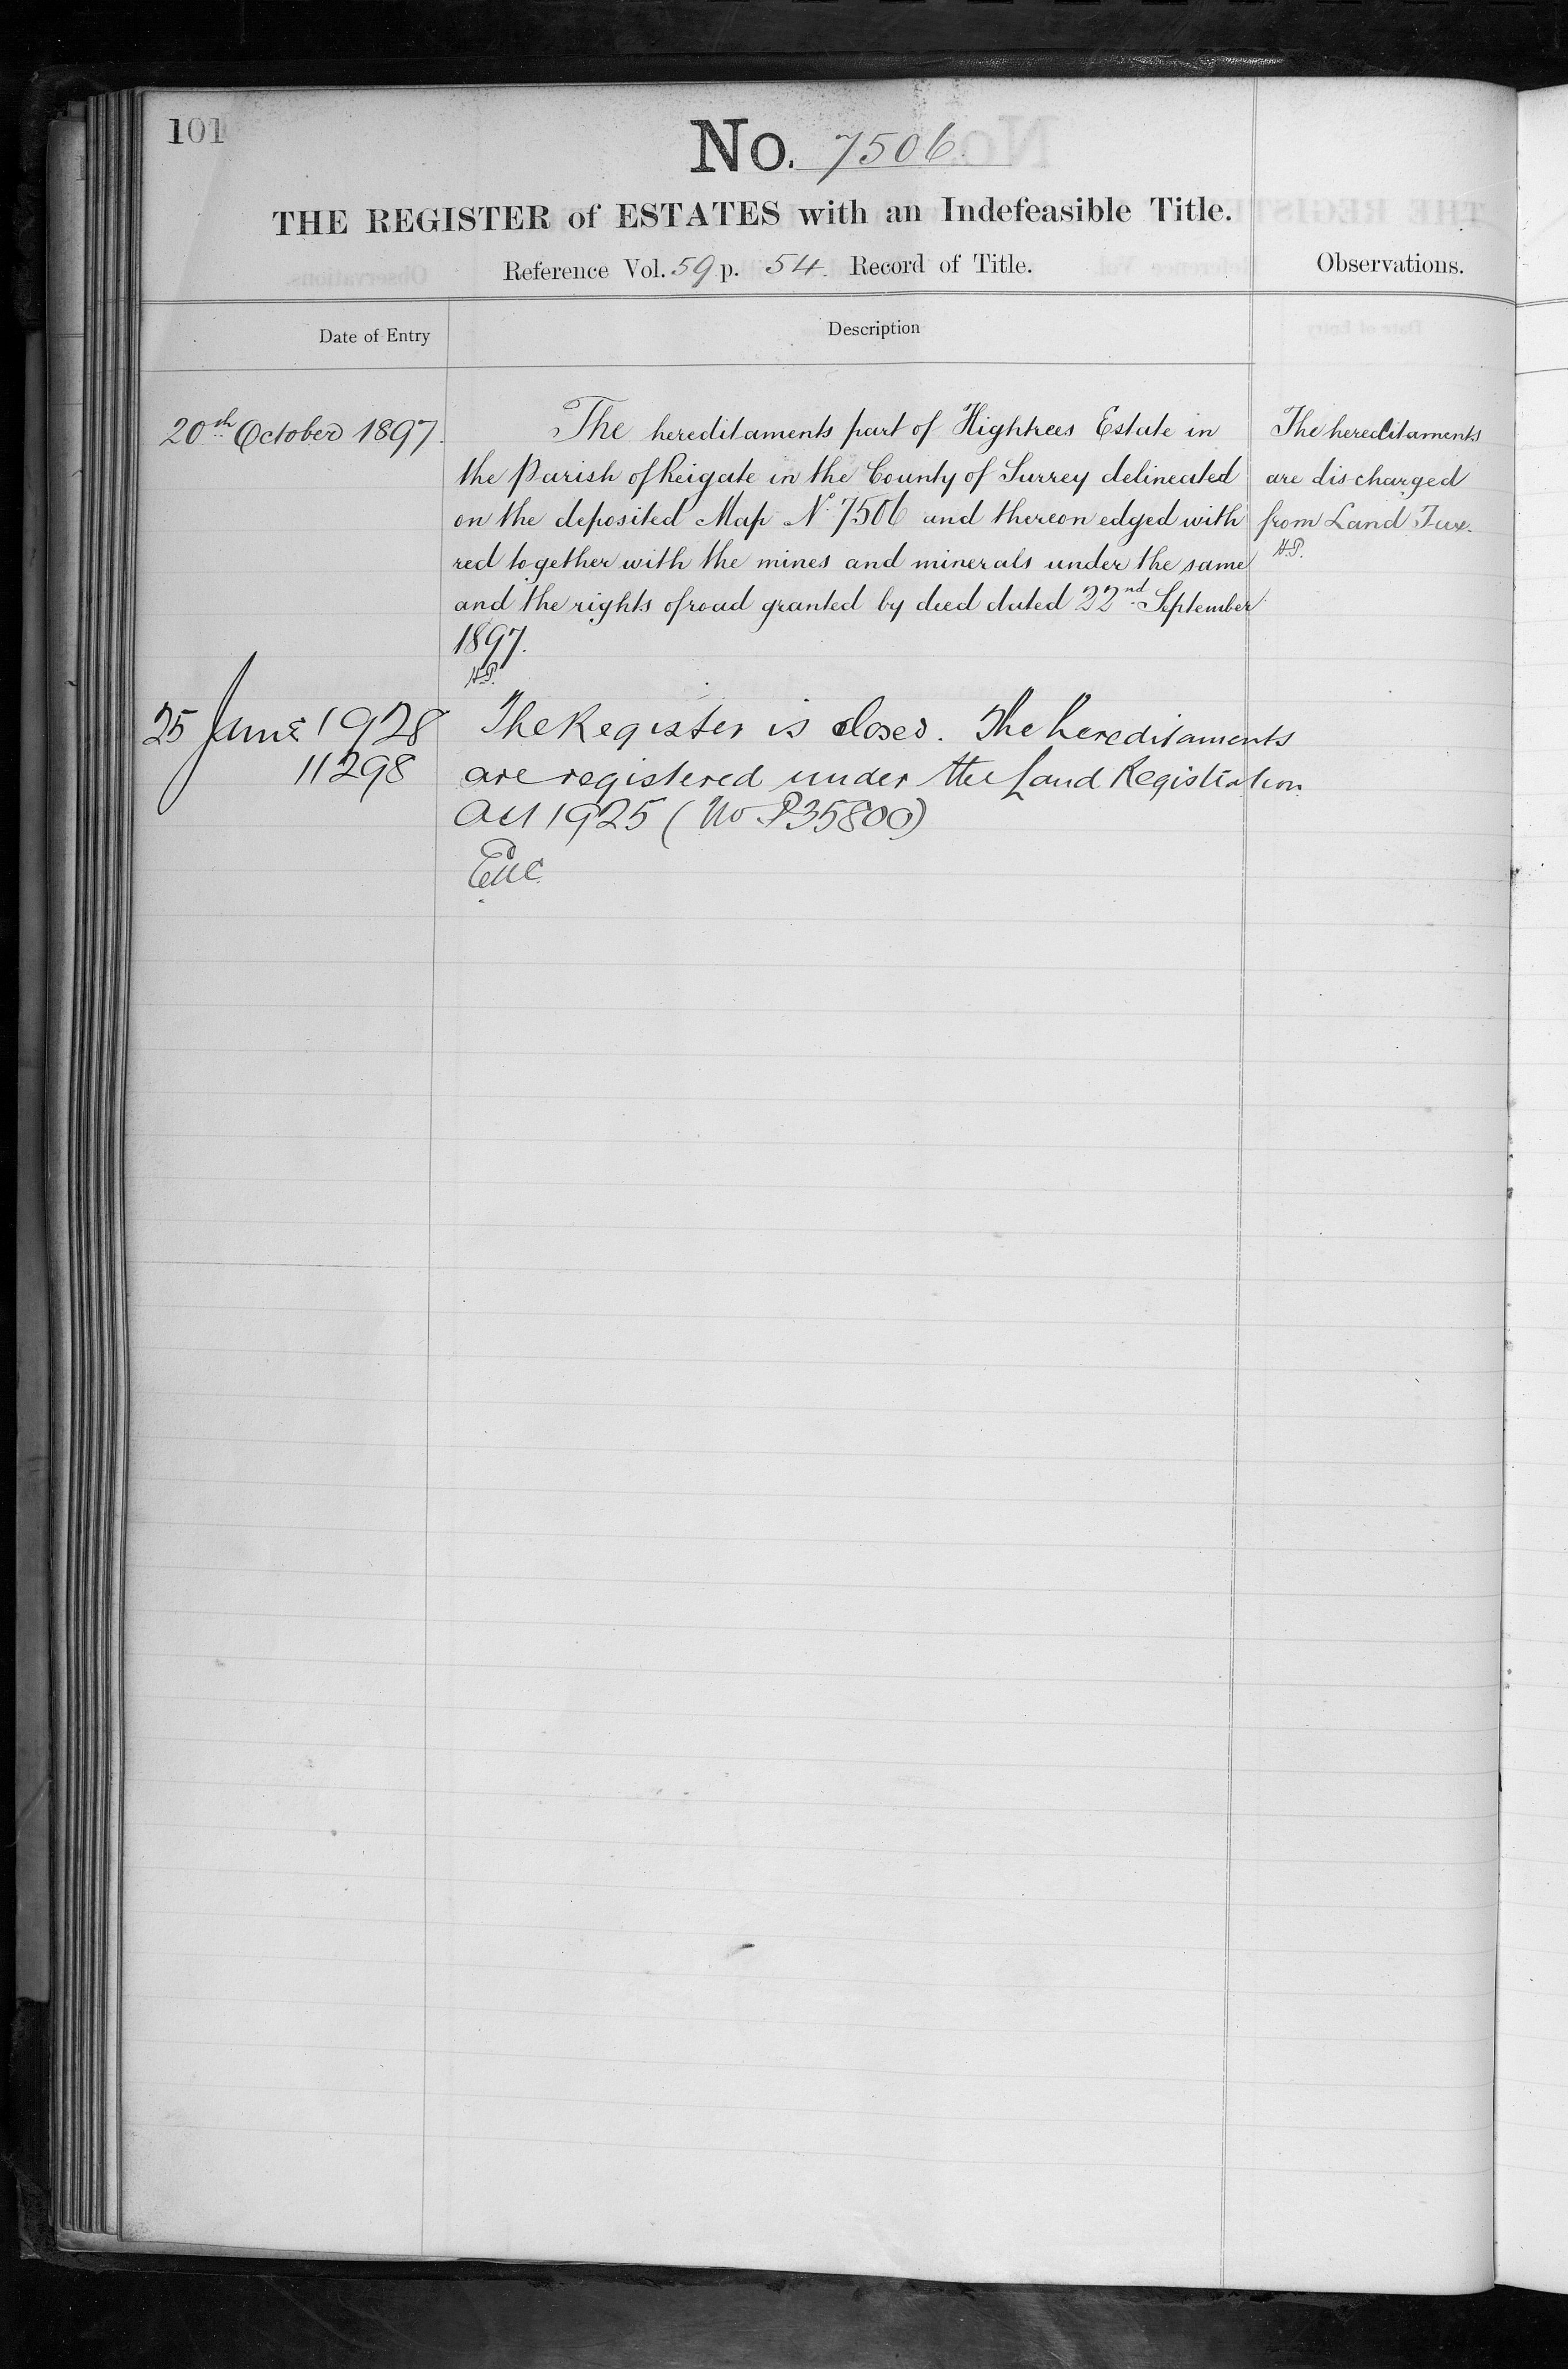 101
No. 7506.
THE REGISTER of ESTATES with an Indefeasible Title.
Reference Vol. 59 p. 54. Record of Title.
Observations.
Date of Entry
Description
20th October 1897.
The hereditaments part of Hightrees Estate in
the Parish of Reigate in the County of Surrey delineated
on the deposited Map No 7506 and thereon edged with
red together with the mines and minerals under the same
and the rights of road granted by deed dated 22nd September
1897.
H.P.
The hereditaments
are discharged
from Land Tax.
H.P.
25 June 1928
11298
The Register is closed. The hereditaments
are registered under the Land Registration
Act 1925 (No P35800)